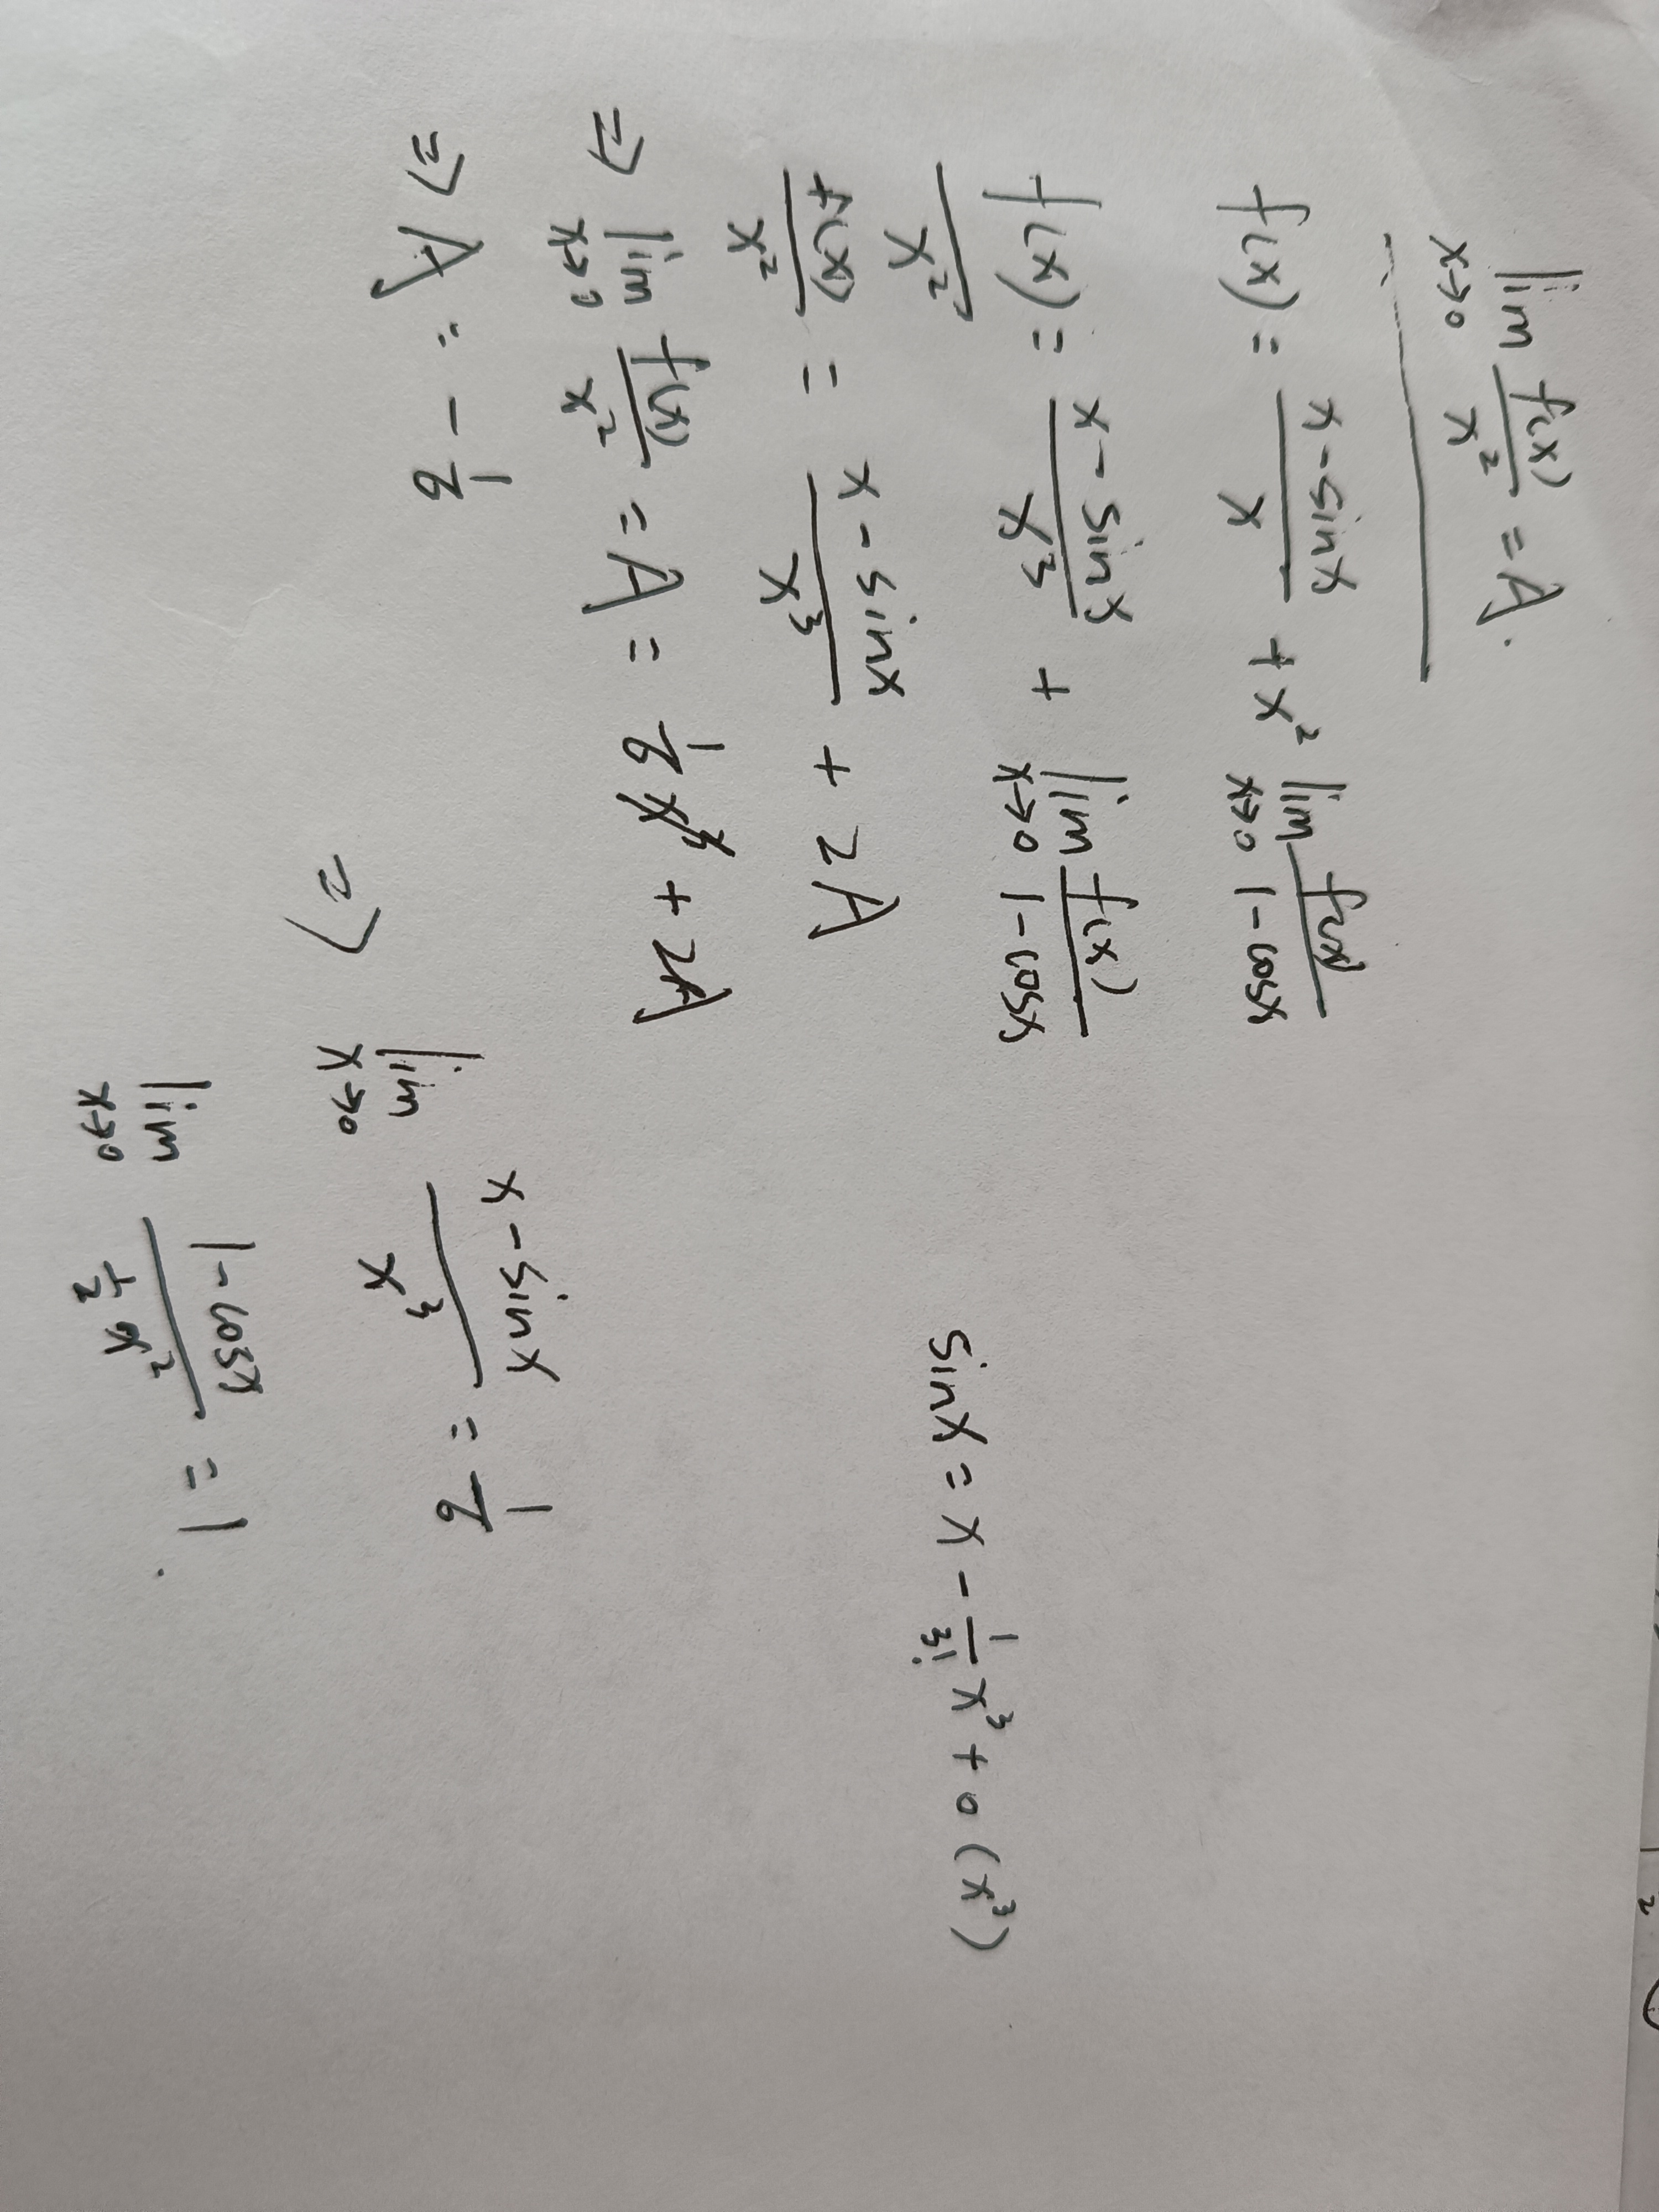 lim x→0 f(x)/x² = A.
f(x) = (x - sinx)/x + x² lim x→0 f(x)/(1-cosx)
f(x)/x² = (x - sinx)/x³ + lim x→0 f(x)/(1-cosx)
sinx = x - 1/3! x³ + o(x³)
f(x)/x² = (x - sinx)/x³ + 2A
⇒ lim x→0 f(x)/x² = A = 1/6 x³ + 2A
⇒ A = - 1/6
⇒ lim x→0 (x - sinx)/x³ = 1/6
lim x→0 (1-cosx)/(1/2 x²) = 1.